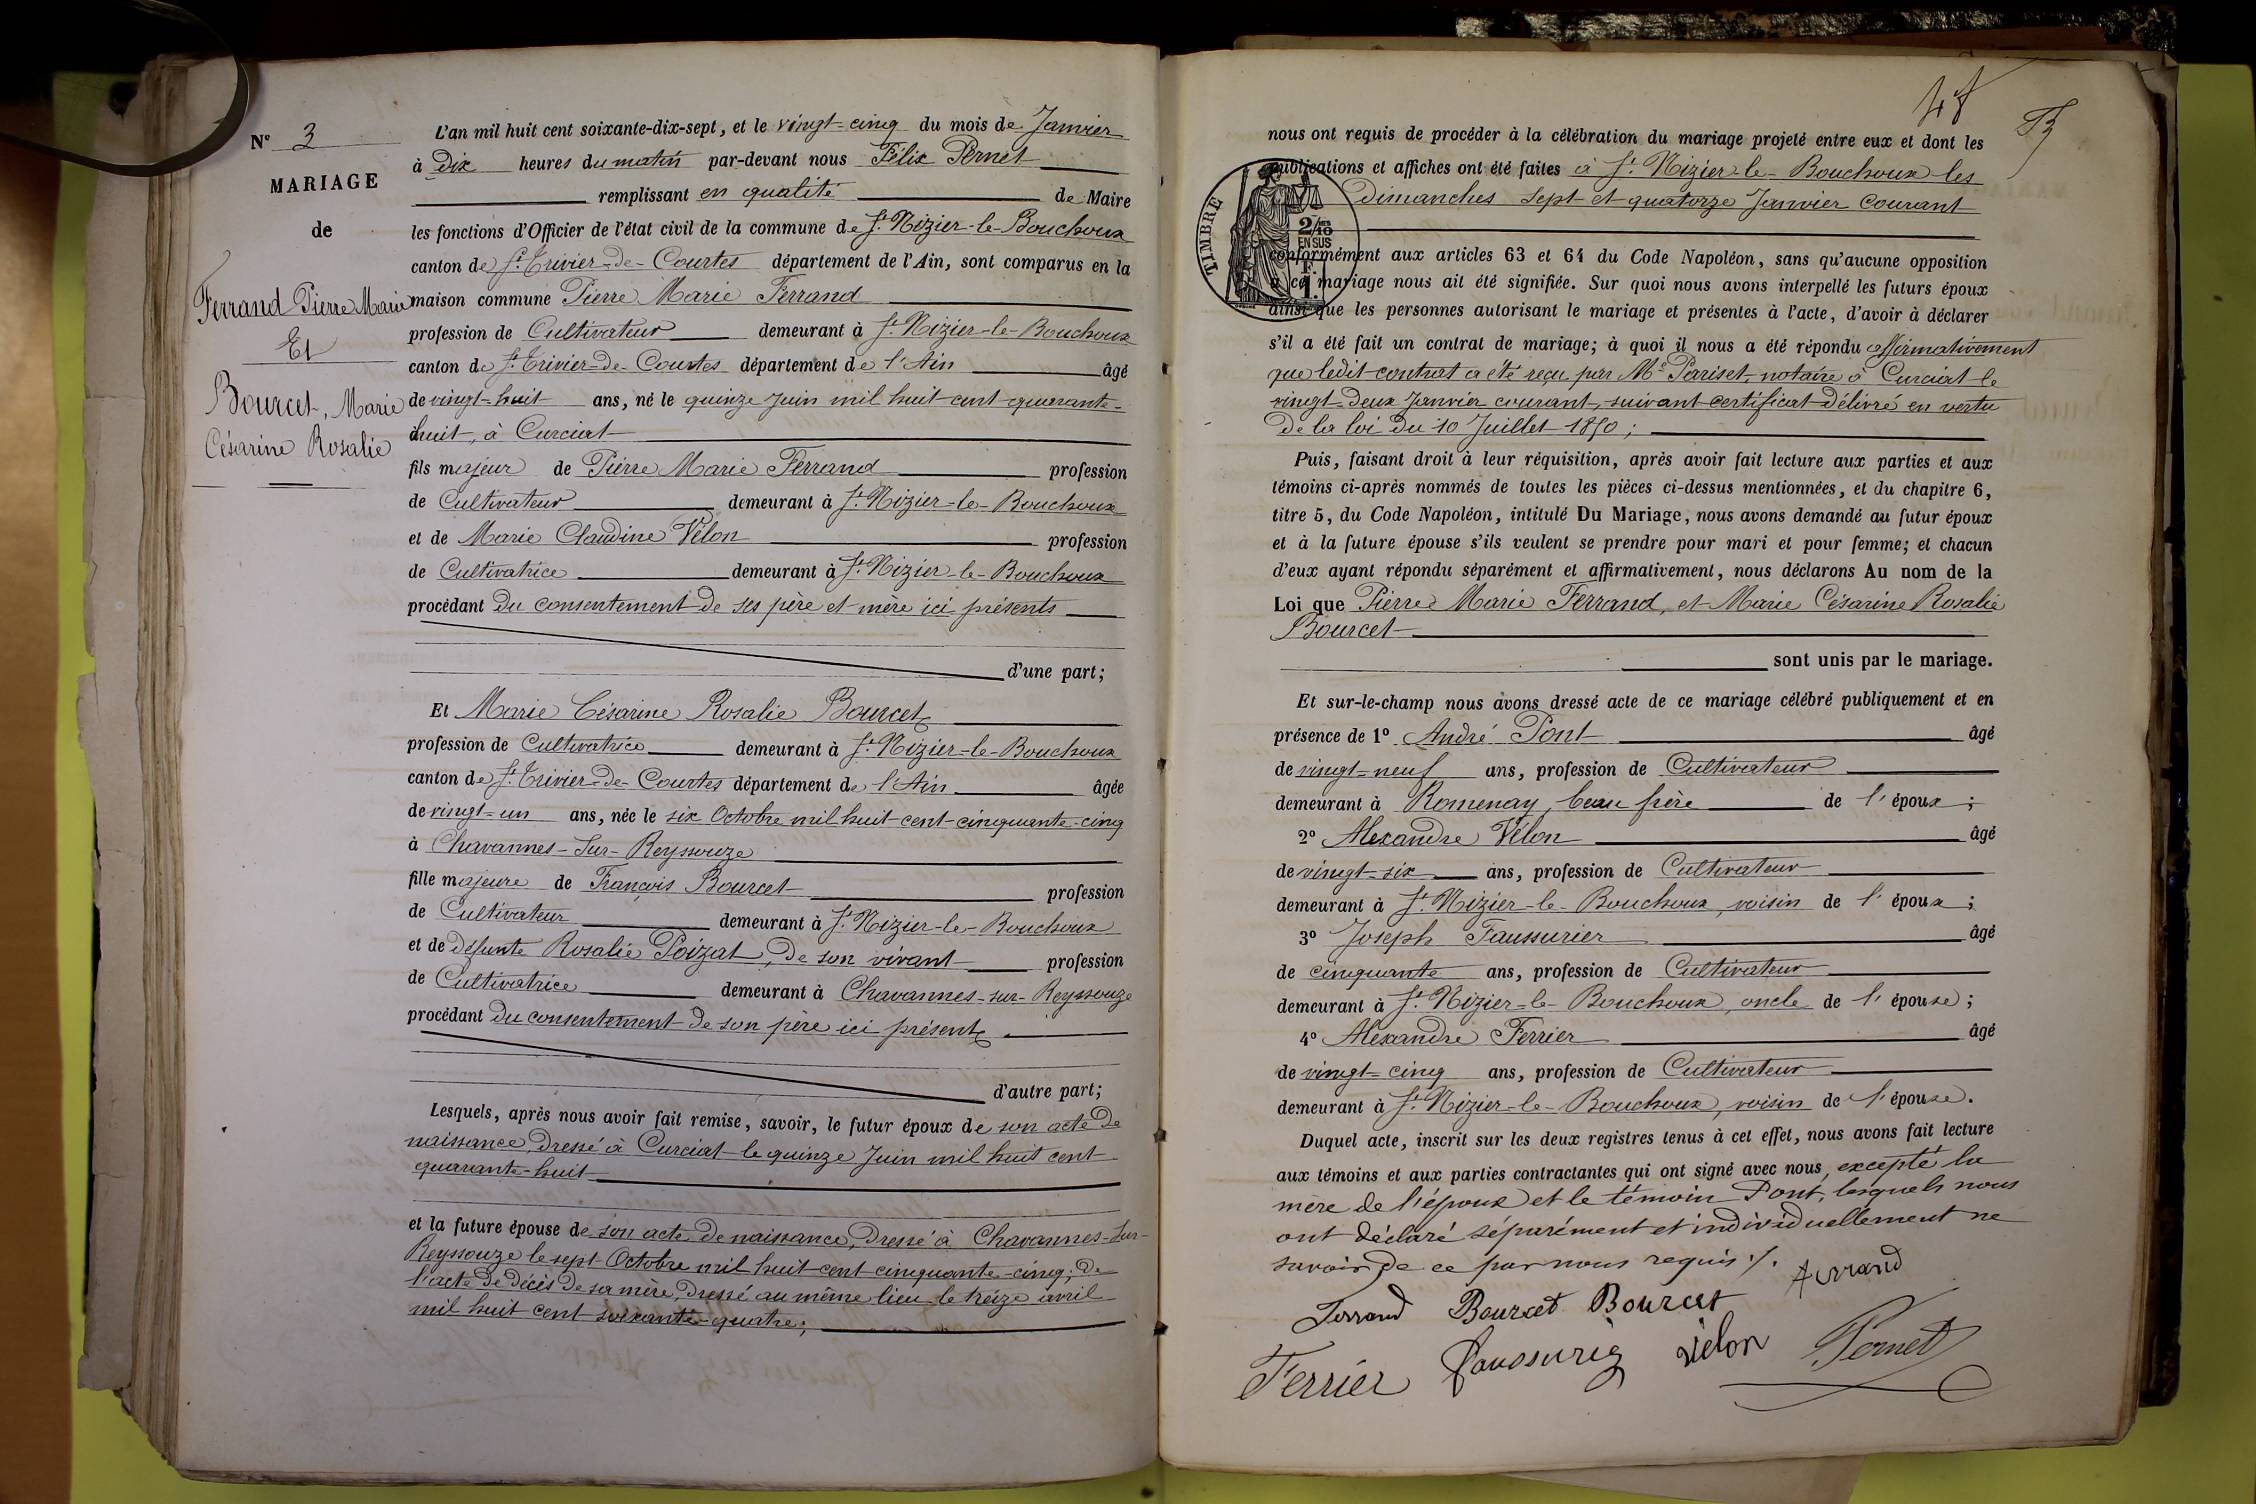 N° 3
MARIAGE
de
Ferrand Pierre Marie
Et
Bourcet, Marie
Césarine Rosalie
L'an mil huit cent soixante-dix-sept, et le vingt-cinq du mois de Janvier
à Dix heures du matin par-devant nous Félix Pernet
remplissant en qualité de Maire
les fonctions d'Officier de l'état civil de la commune de St Nizier-le-Bouchoux
canton de St Trivier-de-Courtes département de l'Ain, sont comparus en la
maison commune Pierre Marie Ferrand
profession de Cultivateur demeurant à St Nizier-le-Bouchoux
canton de St Trivier-de-Courtes département de l'Ain âgé
de vingt-huit ans, né le quinze Juin mil huit cent quarante-
huit, à Curciat
fils majeur de Pierre Marie Ferrand profession
de Cultivateur demeurant à St Nizier-le-Bouchoux
et de Marie Claudine Vélon profession
de Cultivatrice demeurant à St Nizier-le-Bouchoux
procédant du consentement de ses père et mère ici présents
d'une part;
Et Marie Césarine Rosalie Bourcet
profession de Cultivatrice demeurant à St Nizier-le-Bouchoux
canton de St Trivier-de-Courtes département de l'Ain âgée
de vingt-un ans, née le six Octobre mil huit cent cinquante-cinq
à Chavannes-Sur-Reyssouze
fille majeure de François Bourcet profession
de Cultivateur demeurant à St Nizier-le-Bouchoux
et de défunte Rosalie Poizat, de son vivant profession
de Cultivatrice demeurant à Chavannes-sur-Reyssouze
procédant du consentement de son père ici présent
d'autre part;
Lesquels, après nous avoir fait remise, savoir, le futur époux de son acte de
naissance, Dressé à Curciat le quinze Juin mil huit cent
quarante-huit
et la future épouse de son acte de naissance, Dressé à Chavannes-Sur-
Reyssouze le sept Octobre mil huit cent cinquante-cinq; de
l'acte de décès de sa mère, Dressé au même lieu le treize avril
mil huit cent soixante-quatre;
48
nous ont requis de procéder à la célébration du mariage projeté entre eux et dont les
publications et affiches ont été faites à St Nizier-le-Bouchoux les
dimanches sept et quatorze Janvier courant
TIMBRE
2/10
EN SUS
conformément aux articles 63 et 64 du Code Napoléon, sans qu'aucune opposition
à ce mariage nous ait été signifiée. Sur quoi nous avons interpellé les futurs époux
ainsi que les personnes autorisant le mariage et présentes à l'acte, d'avoir à déclarer
s'il a été fait un contrat de mariage; à quoi il nous a été répondu affirmativement
que ledit contrat a été reçu par Me Pariset, notaire à Curciat le
vingt-deux Janvier courant, suivant certificat délivré en vertu
de la loi du 10 Juillet 1850;
Puis, faisant droit à leur réquisition, après avoir fait lecture aux parties et aux
témoins ci-après nommés de toutes les pièces ci-dessus mentionnées, et du chapitre 6,
titre 5, du Code Napoléon, intitulé Du Mariage, nous avons demandé au futur époux
et à la future épouse s'ils veulent se prendre pour mari et pour femme; et chacun
d'eux ayant répondu séparément et affirmativement, nous déclarons Au nom de la
Loi que Pierre Marie Ferrand, et Marie Césarine Rosalie
Bourcet
sont unis par le mariage.
Et sur-le-champ nous avons dressé acte de ce mariage célébré publiquement et en
présence de 1° André Pont âgé
de vingt-neuf ans, profession de Cultivateur
demeurant à Romenay, beau frère de l'époux;
2° Alexandre Vélon âgé
de vingt-six ans, profession de Cultivateur
demeurant à St Nizier-le-Bouchoux, voisin de l'époux;
3° Joseph Faussurier âgé
de cinquante ans, profession de Cultivateur
demeurant à St Nizier-le-Bouchoux, oncle de l'épouse;
4° Alexandre Ferrier âgé
de vingt-cinq ans, profession de Cultivateur
demeurant à St Nizier-le-Bouchoux, voisin de l'épouse.
Duquel acte, inscrit sur les deux registres tenus à cet effet, nous avons fait lecture
aux témoins et aux parties contractantes qui ont signé avec nous, excepté la
mère de l'époux et le témoin Pont, lesquels nous
ont déclaré séparément et individuellement ne
savoir de ce par nous requis ./.
Ferrand
Ferrand Bourcet Bourcet
Ferrier Faussurier Vélon Pernet